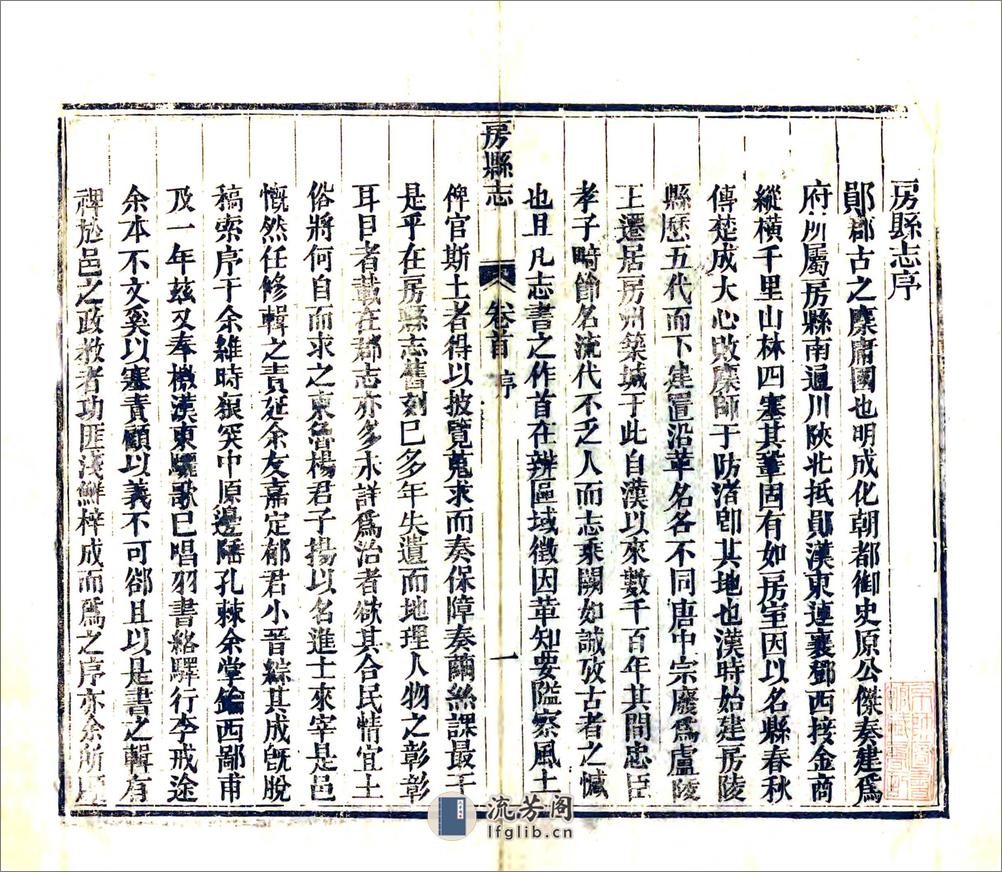 房縣志序
鄖郡古之麋庸國也明成化朝都御史原公傑奏建爲
府所屬房縣南通川陝北抵鄖漢東連襄鄧西接金商
縱橫千里山林四塞其鞏固有如房室因以名縣春秋
傳楚成大心敗麋師于防渚卽其地也漢時始建房陵
縣歷五代而下建置沿革名名不同唐中宗廢爲盧陵
王遷居房州築城于此自漢以來數千百年其間忠臣
孝子畸節名流代不乏人而志乘闕如誠攷古者之憾
也且凡志書之作首在辨區域徵因革知要隘察風土
房縣志
卷首 序
一
俾官斯土者得以披覽蒐求而奏保障奏繭絲課最于
是乎在房縣志舊刻已多年失遺而地理人物之彰彰
耳目者載在郡志亦多未詳爲治者欲其合民情宜土
俗將何自而求之東魯楊君子揚以名進士來宰是邑
慨然任修輯之責延余友嘉定郁君小晉綜其成旣脫
稿索序于余維時狼突中原邊陲孔棘余堂錀西鄙甫
及一年玆又奉檄漢東驪歌已唱羽書絡驛行李戒途
余本不文奚以塞責顧以義不可郤且以是書之輯有
裨於邑之政教者功匪淺鮮梓成而爲之序亦余所
流芳阁
lfglib.cn